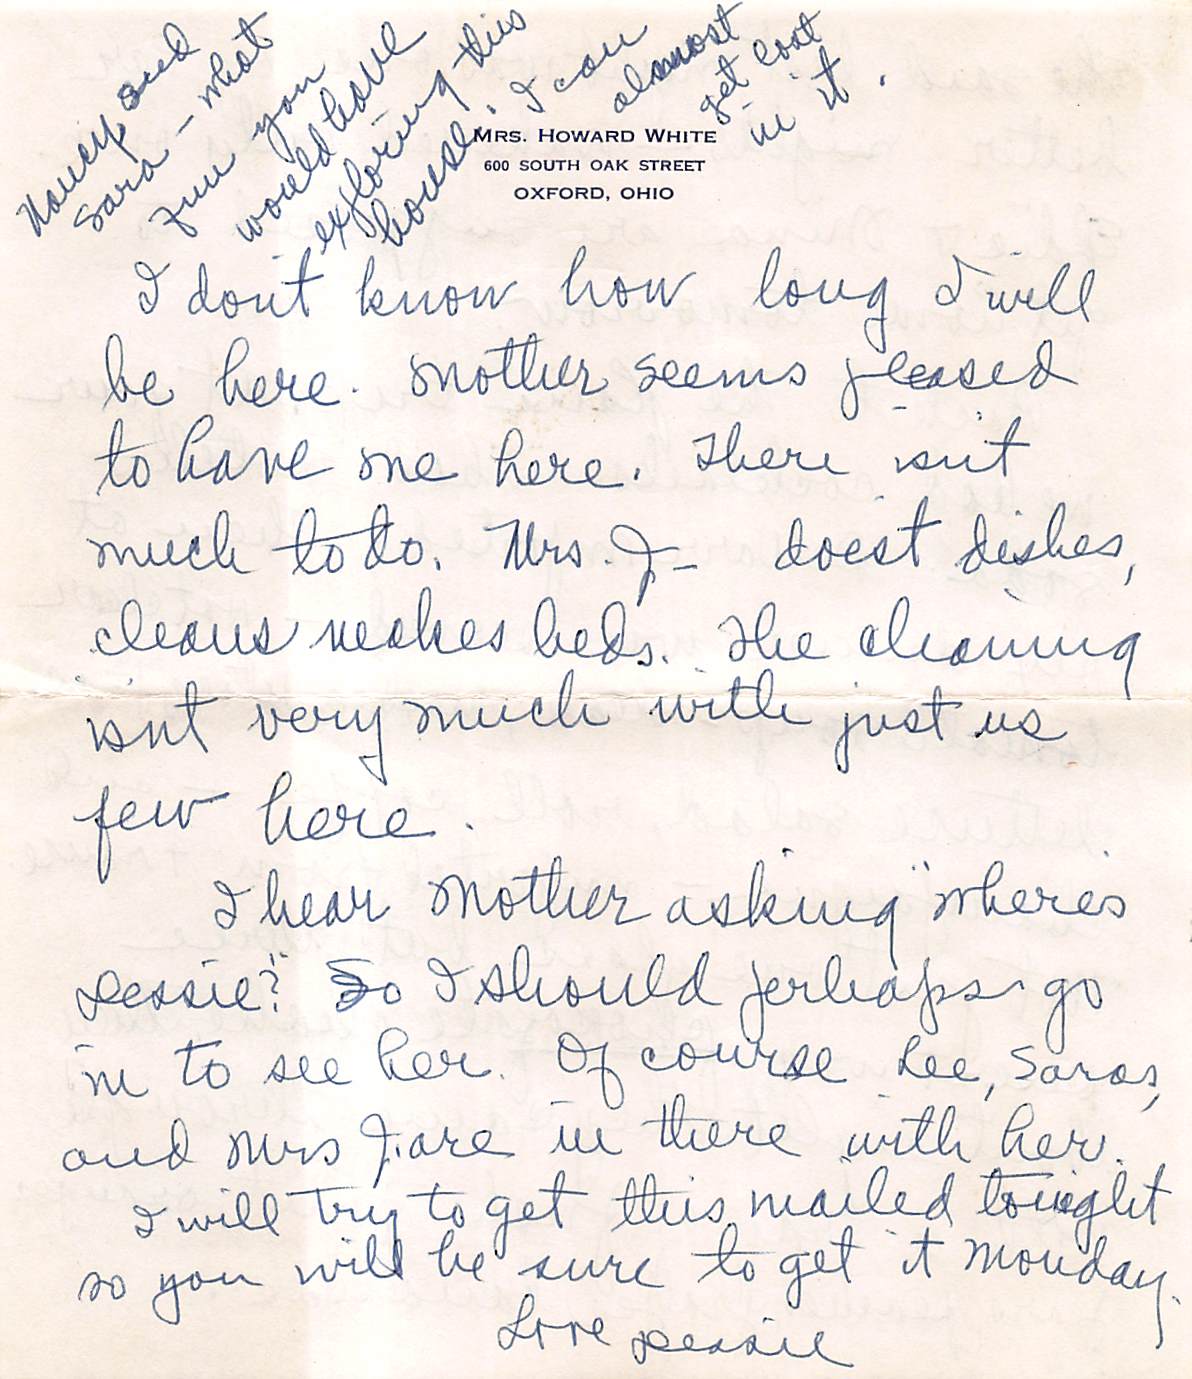 Nancy and
Sara - what
fun you
would have
exploring this
house. I can
almost
get lost
in it.
MRS. HOWARD WHITE
600 SOUTH OAK STREET
OXFORD, OHIO
I don't know how long I will
be here. Mother seems pleased
to have me here. There isn't
much to do. Mrs. J- doest dishes,
cleans makes beds. The cleaning
isnt very much with just us
few here.
I hear Mother asking "where's
Dessie?" So I should perhaps go
in to see her. Of course Lee, Saras,
and Mrs J. are in there with her.
I will try to get this mailed tonight
so you will be sure to get it Monday.
Love Dessie